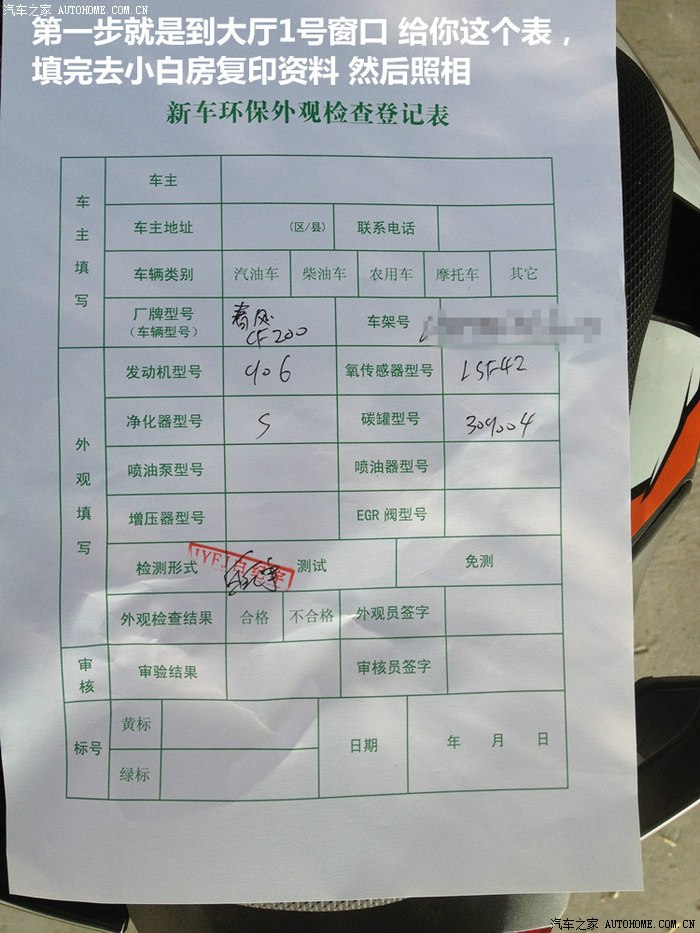 汽车之家 AUTOHOME.COM.CN
第一步就是到大厅1号窗口 给你这个表，
填完去小白房复印资料 然后照相
新车环保外观检查登记表
车主填写
车主
车主地址 (区/县) 联系电话
车辆类别 汽油车 柴油车 农用车 摩托车 其它
厂牌型号 春风 车架号
(车辆型号) CF200
外观填写
发动机型号 906 氧传感器型号 LSF42
净化器型号 S 碳罐型号 309004
喷油泵型号 喷油器型号
增压器型号 EGR 阀型号
检测形式 测试 免测
外观检查结果 合格 不合格 外观员签字
审核
审验结果 审核员签字
标号
黄标 日期 年 月 日
绿标
汽车之家 AUTOHOME.COM.CN